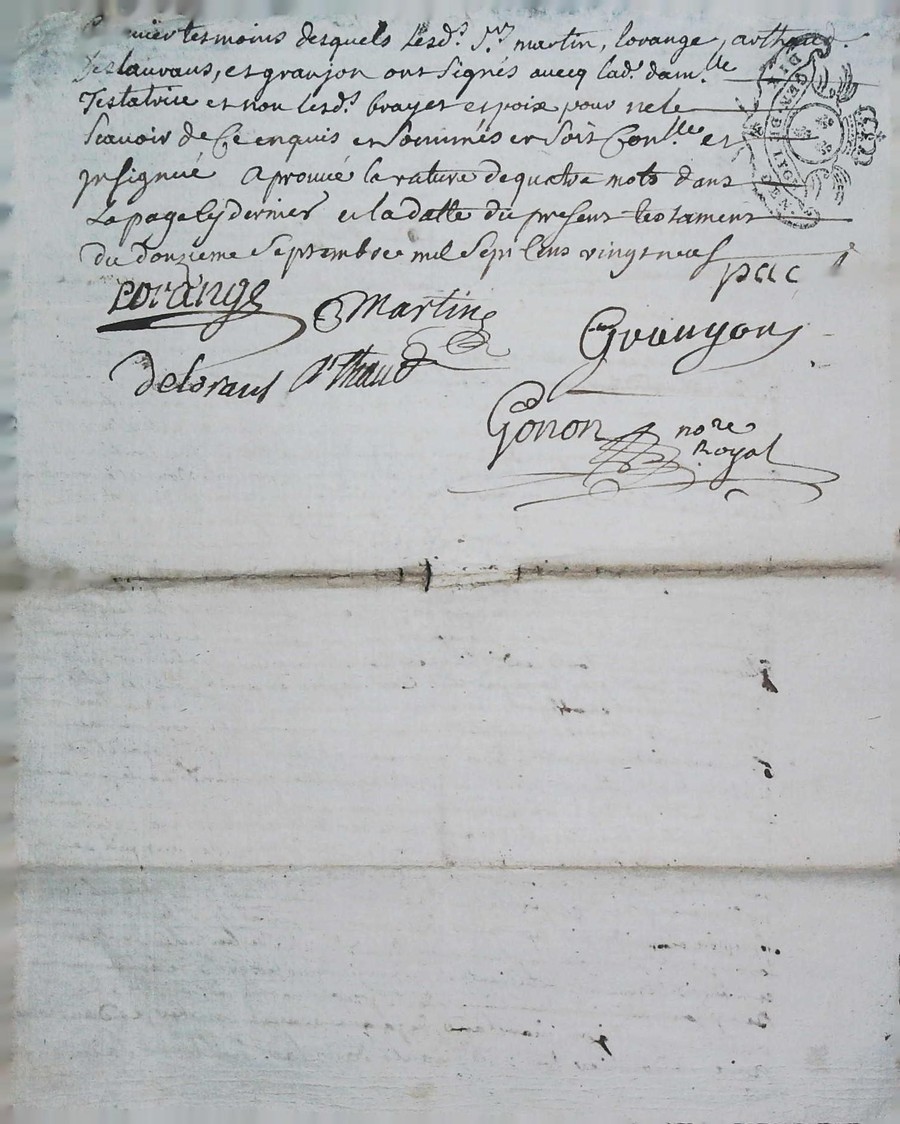 tesmoins desquels lesd.s s.rs martin, lorange, arthaud
Delauraus, et granjon ont signés avecq lad. dam.lle
Testatrice et non lesd.s brayet et poix pour ne le
Scavoir de Ce enquis et Sommés et Soit Con.lle et
jnsignué Aprouué la rature de quatre mots dans
La page et la datte du present testament
du douzieme Septembre mil Sept Cens vingt neuf
pac
Lorange Martin Granyon
deloraus Arthaud
Gonon no.re
Royal
GEN